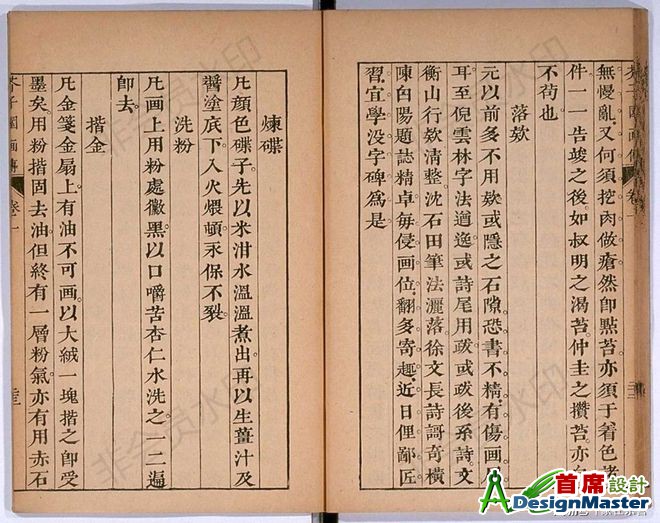 無慢亂。又何須挖肉做瘡。然即點苔。亦須于着色
件一一告竣之後。如叔明之渴苔。仲圭之攢苔。亦
不苟也
落欵
元以前多不用欵。或隱之石隙。恐書不精。有傷画
耳。至倪雲林字法遒逸。或詩尾用跋。或跋後系詩。文
衡山行欵清整。沈石田筆法灑落。徐文長詩謌奇橫
陳白陽題誌精卓。每侵画位。翻多寄趣。近日俚鄙匠
習。宜學没字碑爲是
煉碟
凡顔色碟子。先以米泔水溫溫煮出。再以生薑汁及
醬塗底下。入火煨頓。永保不裂
洗粉
凡画上用粉處黴黑。以口嚼苦杏仁水洗之。一二遍
即去
揩金
凡金箋金扇上。有油不可画。以大絨一塊揩之。即受
墨矣。用粉揩固去油。但終有一層粉氣。亦有用赤石
芥子園画傳
卷一
首席設計
ADesignMaster
非会员水印